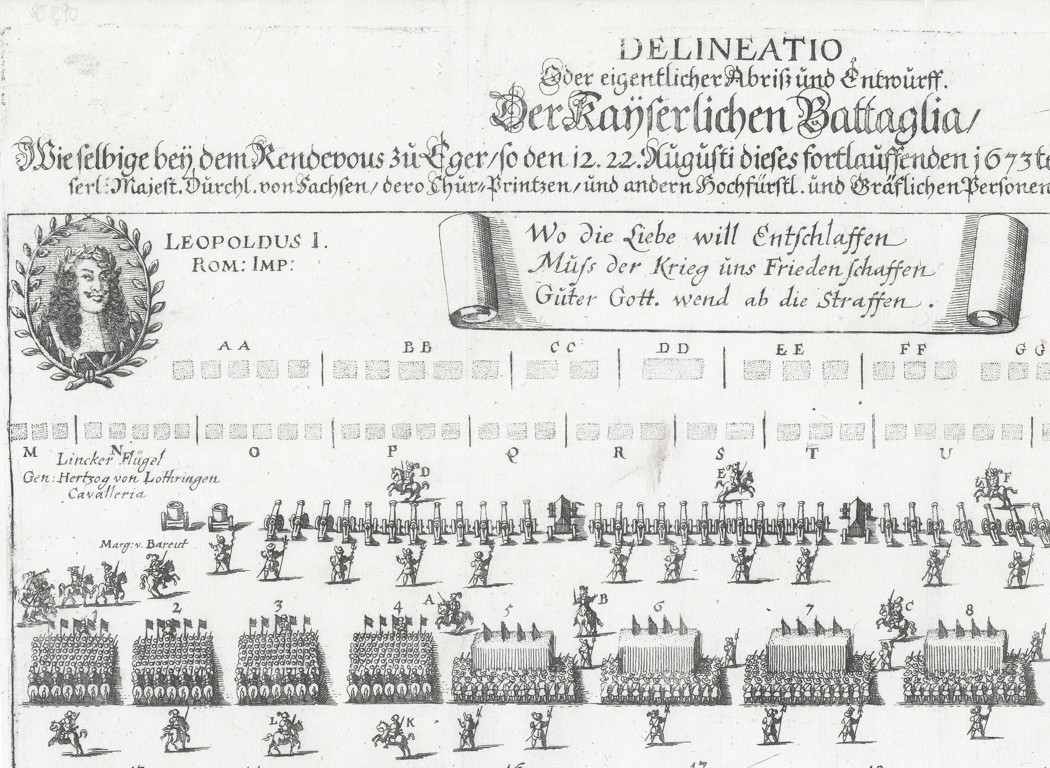 DELINEATIO,
Oder eigentlicher Abriß und Entwurff.
Der Kaÿserlichen Battaglia/
Wie selbige beÿ dem Rendevous zu Eger/so den 12. 22. Augusti dieses fortlauffenden 1673te
serl: Majest. Durchl. von Sachsen/dero Chur-Printzen/und andern Hochfürstl. und Gräflichen Personen
LEOPOLDUS I.
ROM: IMP:
Wo die Liebe will Entschlaffen
Muss der Krieg uns Frieden schaffen
Guter Gott. wend ab die Straffen.
AA BB CC DD EE FF GG
M N O P Q R S T U
Lincker Flügel
Gen: Hertzog von Lothringen
Cavalleria
D E F
Marg: v. Bareut
A B C
1 2 3 4 5 6 7 8
L K